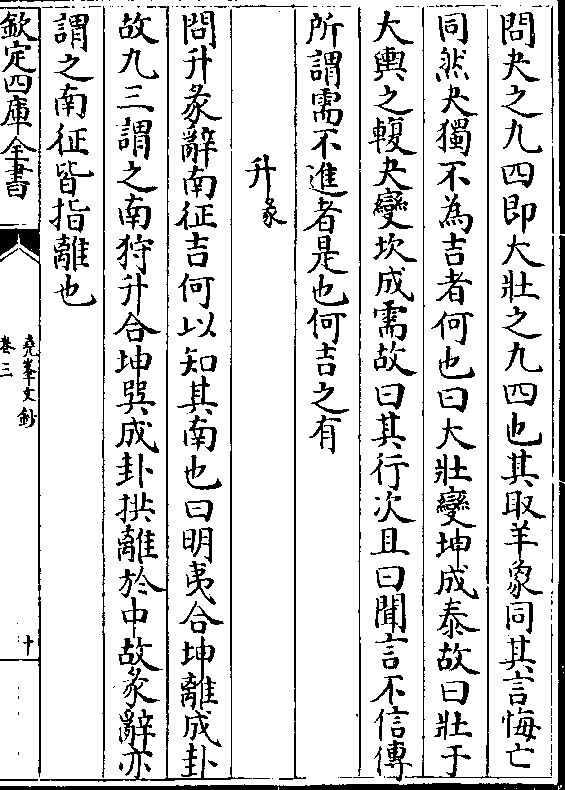 問夬之九四即大壯之九四也其取羊象同其言悔亡
同然夬獨不為吉者何也曰大壯變坤成泰故曰壯于
大輿之輹夬變坎成需故曰其行次且曰聞言不信傳
所謂需不進者是也何吉之有
升彖
問升彖辭南征吉何以知其南也曰明夷合坤離成卦
故九三謂之南狩升合坤巽成卦拱離於中故彖辭亦
謂之南征皆指離也
欽定四庫全書
堯峯文鈔
卷三
十